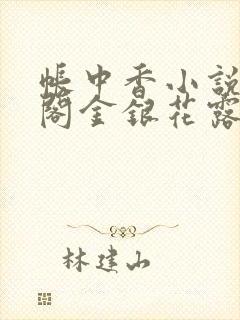 帐中香小説
閣金銀花露
林建山